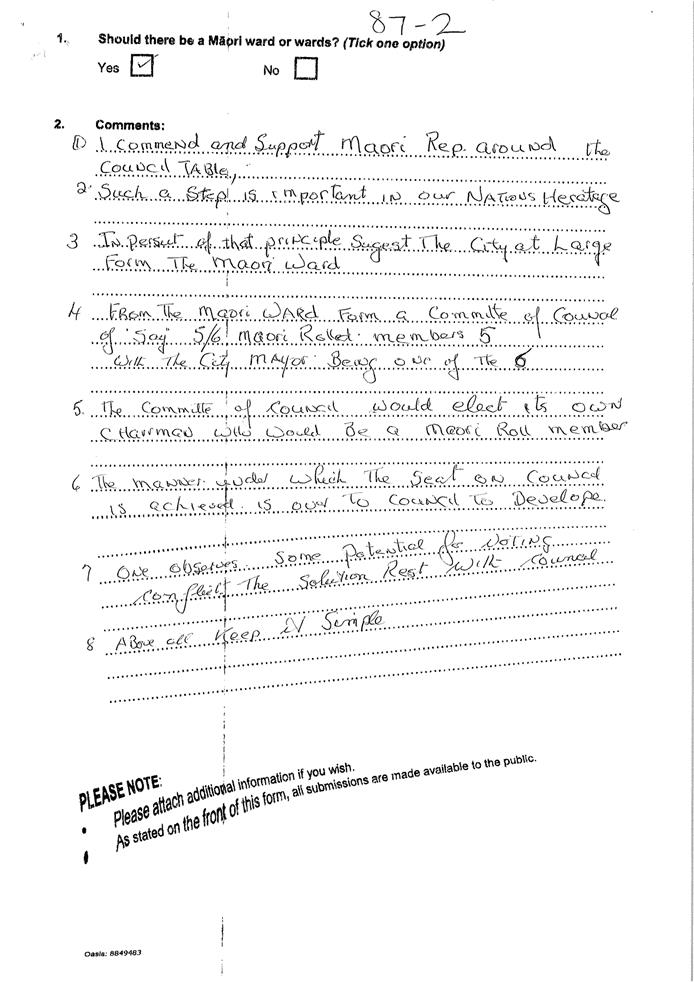 87-2
1. Should there be a Māori ward or wards? (Tick one option)
Yes ✓ No
2. Comments:
1) I Commend and Support Maori Rep. around the
Council TABLE,
2. Such a Step is important in our Nations Heratage
3 In Persut of that principle Sugest The City at Large
Form The Maori Ward
4 FROM The Maori WARD Form a Committe of Council
of "Say" 5/6 Maori Rolled. members 5
With The City Mayor Being one of The 6
5. The Committe of Council would elect its own
CHairman would Be a Maori Roll member
6 The manner under which The Seat on Council
is achieved is our To Council To Develope.
7 One observes Some Potential for Voting
conflict The Solution Rest With Council
8 Above all Keep iV Simple
PLEASE NOTE:
• Please attach additional information if you wish.
• As stated on the front of this form, all submissions are made available to the public.
Oasis: 8849483